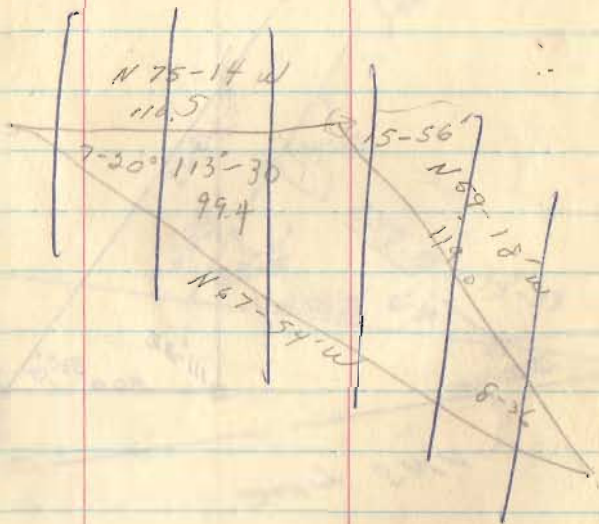 N 75-14 W
116.5
15-56'
7-20' 113°-30
99.4
N 59-18'-W
119.0
N 67-54' W
8-36